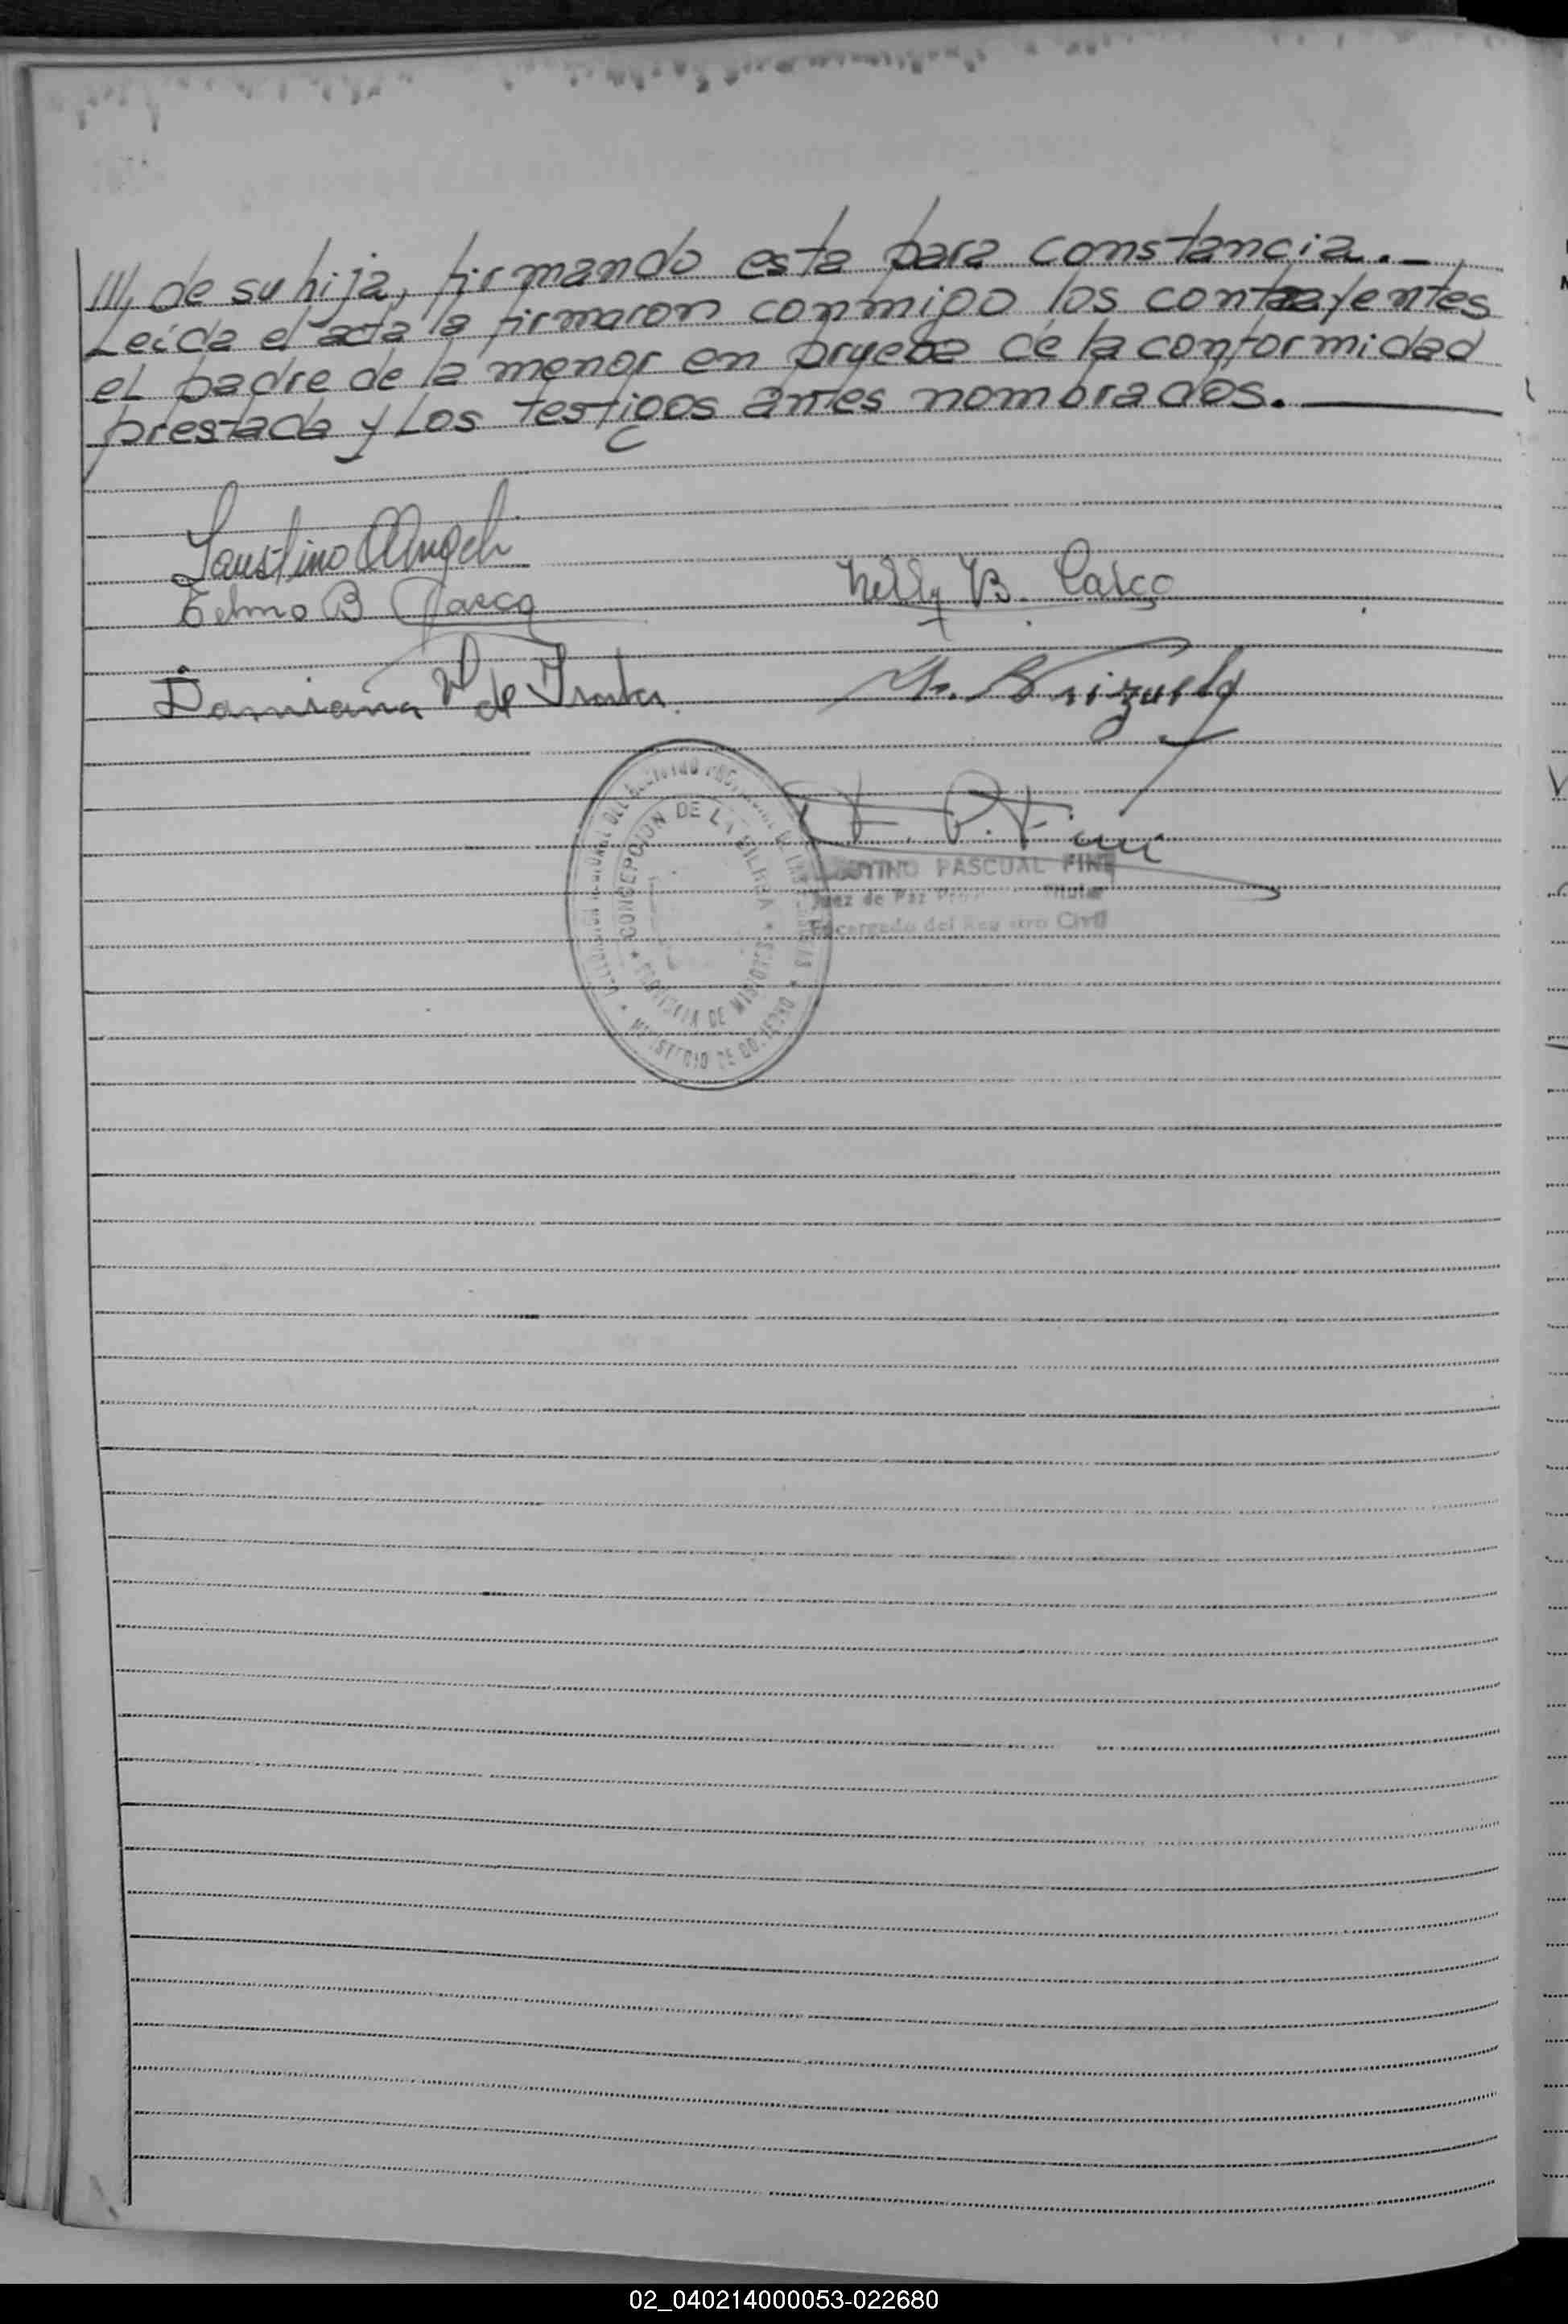 ///, de su hija, firmando esta para constancia.-
Leída el acta la firmaron conmigo los contrayentes
el padre de la menor en prueba de la conformidad
prestada y Los testigos antes nombrados.
Faustino Angel
Nelly B. Casco
Telmo B Casco
Damiana V de
Brizuela
CONCEPCION DE LA SIERRA
PROVINCIA DE MISIONES
MINISTERIO DE GOBIERNO
PASCUAL FINI
Juez de Paz Titular
Encargado del Registro Civil
02_040214000053-022680